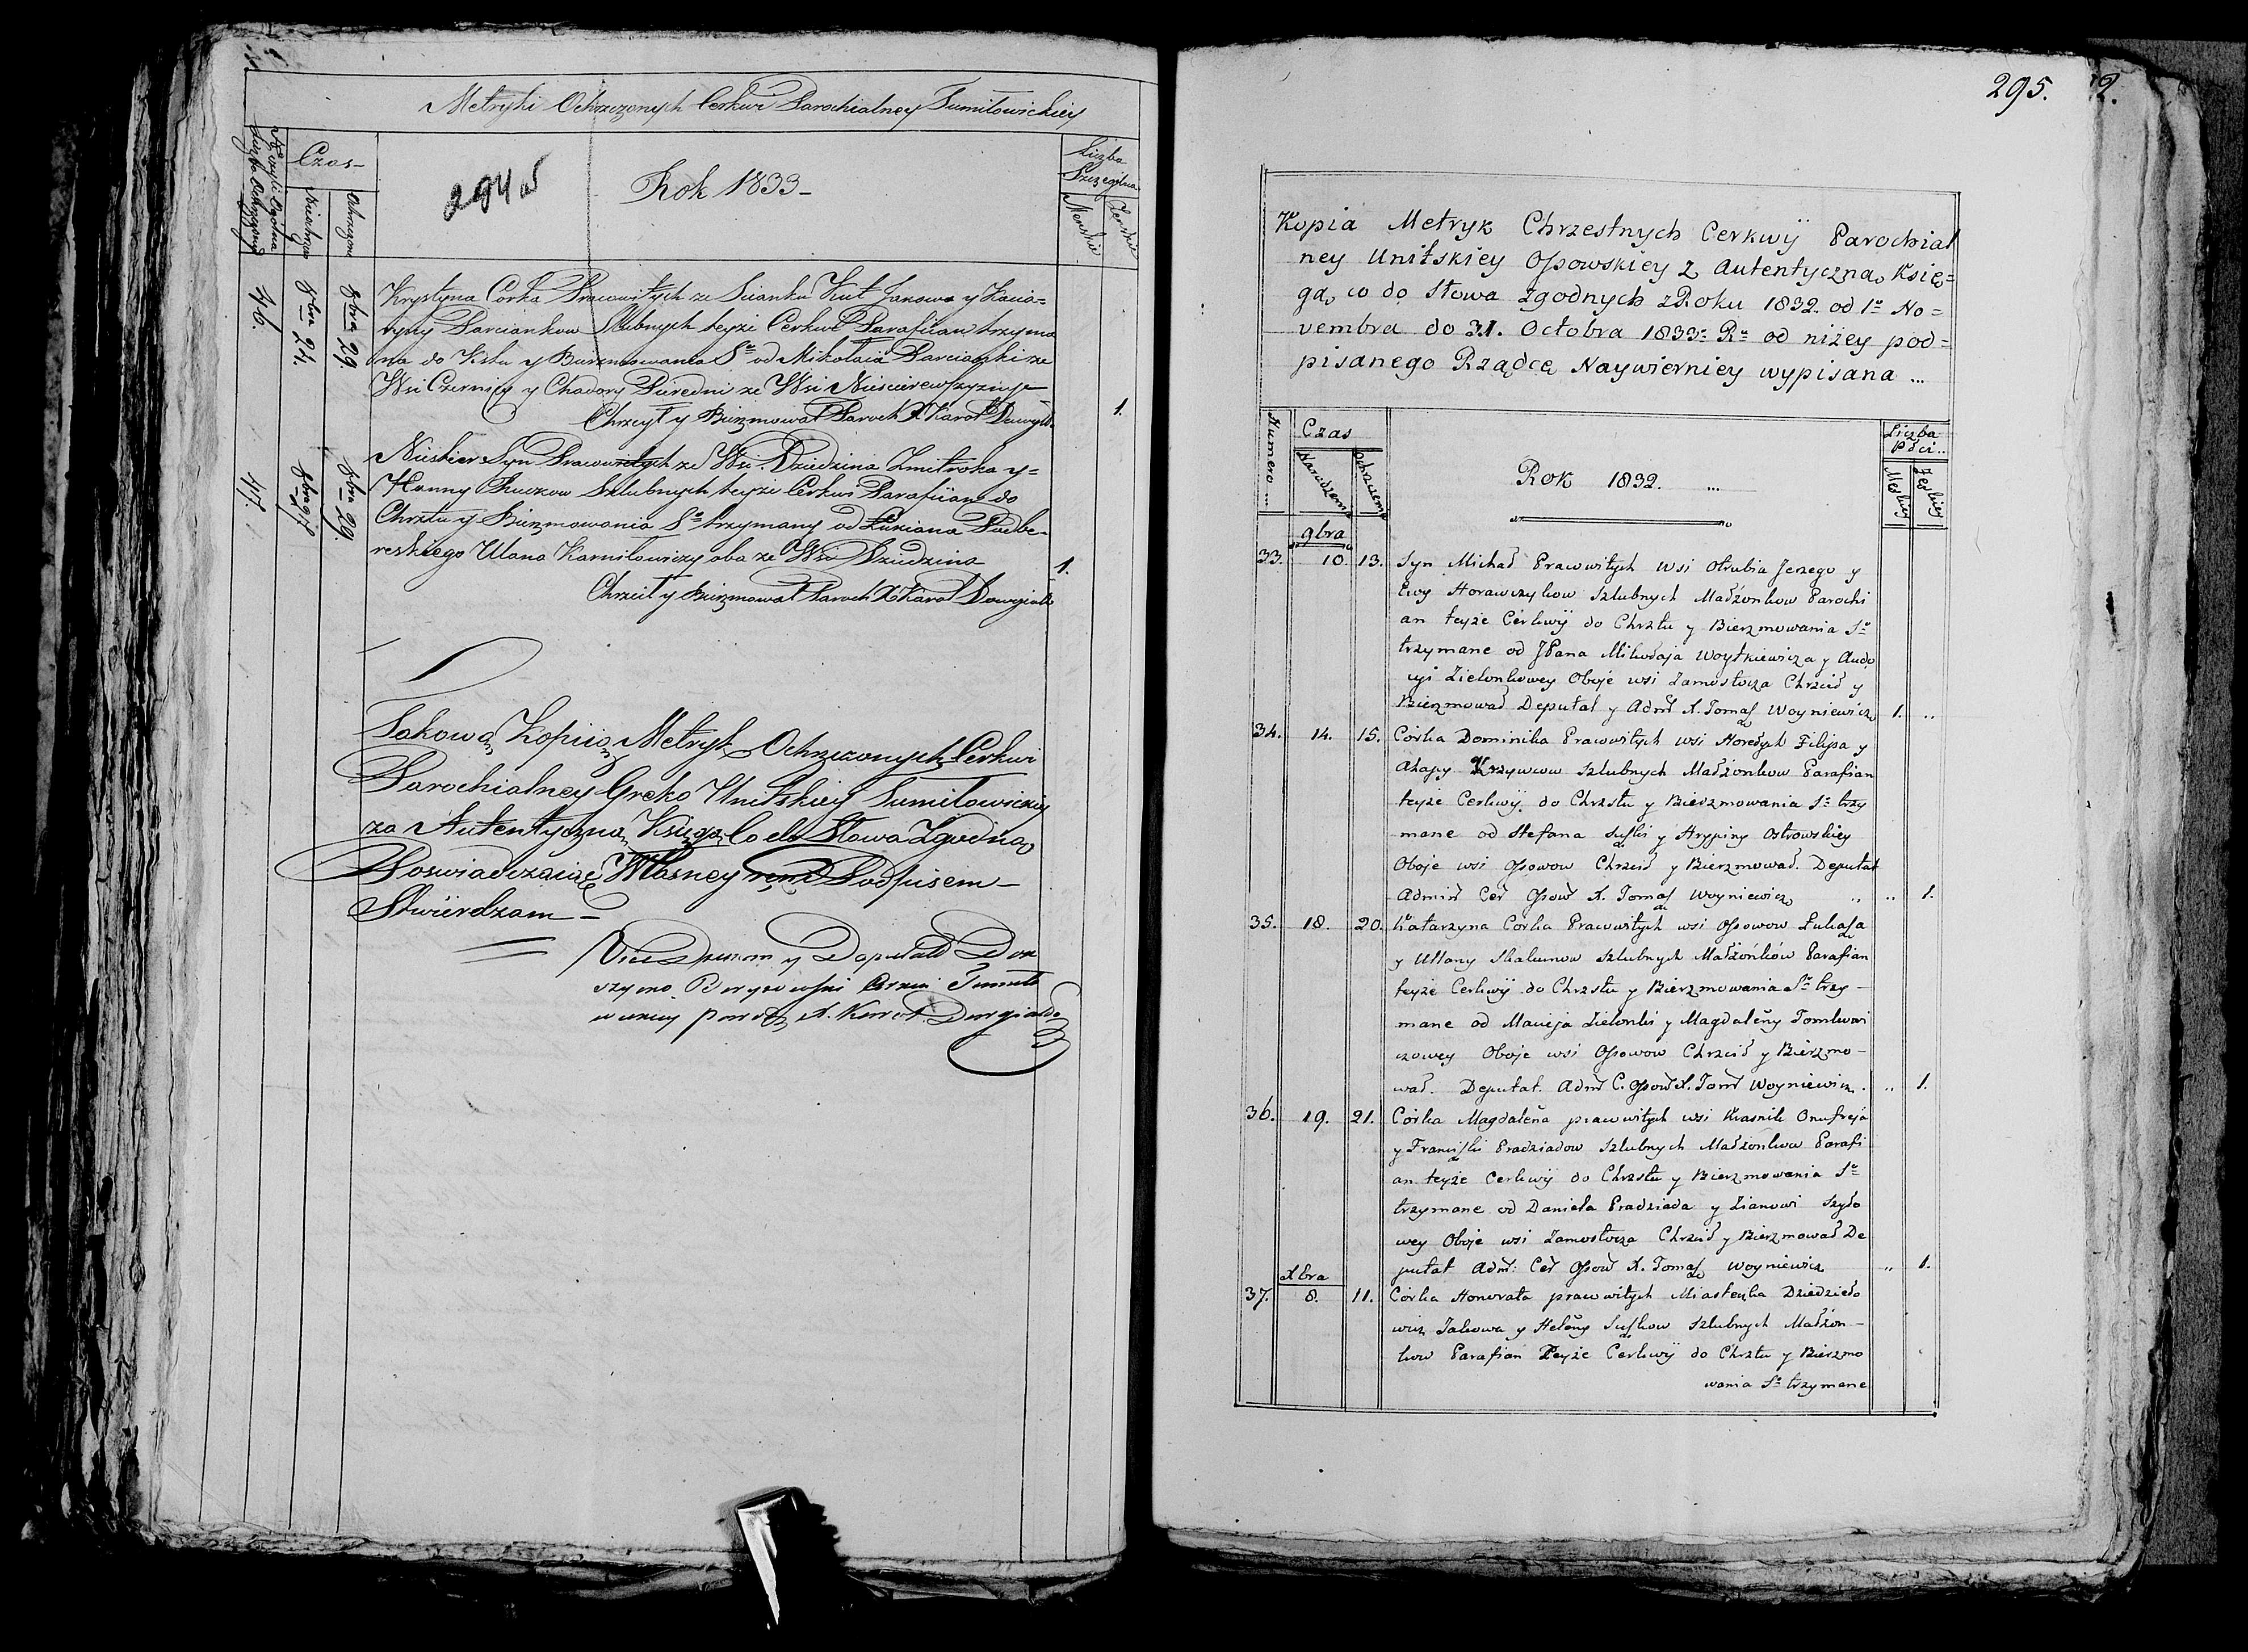 Metryki Ochrzczonych Cerkwi Parochialney Tumiłowickiey
Czas
294
Rok 1833
Liczba
Szczegulna
Ochrzczon
Męskie
Żeńskie
46.
8bra 24.
8bra 29.
Krystyna Corka Pracowitych ze Scianku Kut Janowa y Kacia=
ryny Parciankow Szlubnych teyże Cerkwi Parafiian trzyma
na do Krztu y Burzmowania So od Mikołaia Parcianki ze
Wsi Czernica y Chadory ze Wsi
Chrzcył y Bierzmował Paroch X Karol Dowgiał
1.
47.
8bra 29.
Syn Pracowitych ze Wsi Dziedzina Zmitroka y=
Hanny Szlubnych teyże Cerkwi Parafiian do
Chrztu y Bierzmowania So trzymany od Łukiana Podbe-
reskiego Ulana Karniłowiczy oba ze Wsi Dziedzina
1.
Chrzcił y Bierzmował Paroch X Karol Dowgiałło
Takową Kopiią Metryk Ochrzczonych Cerkwi
Parochialney Greko Unitskiey Tumiłowickiey
za Autentyczną Księgą Co do Słowa Zgodną
Poswiadczaiąc Własney ręki Podpisem
Stwierdzam
Vice Dziekan y Deputat Dok
szycko Borysowski Cerkwi Tumiło
wickiey paroch X. Karol Dowgiałło
295.
2.
Kopia Metryk Chrzestnych Cerkwÿ Parochial
ney Unitskiey Ossowskiey z Autentyczną Księ=
gą co do Słowa zgodnych z Roku 1832. od 1o No=
vembra do 31. Octobra 1833: Ru od niżey pod=
pisanego Rządcę Naywierniey wypisana ...
Numero ...
Czas
Narodzenia
Ochrzczenia
Rok 1832. ...
Liczba
Płci ..
Męskiey
Żeńskiey
9bra
33. 10. 13. Syn Michał Pracowitych wsi Otrubia Jerzego y
Ewy Horawczykow Szlubnych Małżonkow Parochi
an teyże Cerkwÿ do Chrztu y Bierzmowania So
trzymane od JPana Mikołaja Woytkiewicza y Audo
cyi Zielonkowey Oboje wsi Zamostocza Chrzcił y
Bierzmował Deputat y Admł X. Tomasz Woyniewicz 1. ..
34. 14. 15. Corka Dominika Pracowitych wsi Filipa y
Ahapy Krzywcow Szlubnych Małżonkow Parafian
teyże Cerkwÿ do Chrzstu y Bierzmowania So trzy
mane od Stefana Suszki y Hrypiny Ostrowskiey
Oboje wsi Ossowow Chrzcił y Bierzmował. Deputat
Admin Cer Ossow X. Tomasz Woyniewicz .. .. 1.
35. 18. 20. Katarzyna Corka Pracowitych wsi Ossowow Łukasza
y Ullany Skakunow Szlubnych Małżónków Parafian
teyże Cerkwÿ do Chrzstu y Bierzmowania So trzy-
mane od Macieja Zielonki y Magdaleny Tomkowi
czowey Oboje wsi Ossowow Chrzcił y Bierzmo-
wał. Deputat. Admł C. Ossow X. Tomł Woyniewicz. .. 1.
36. 19. 21. Córka Magdalena pracowitych wsi Krasnik Onufreja
y Franciszki Pradziadow Szlubnych Małżonkow Parafi
an teyże Cerkwÿ do Chrzstu y Bierzmowania So
trzymane od Daniela Pradziada y Zianowi Szyło
wey Oboje wsi Zamostocza Chrzcił y Bierzmował De
putat Admł: Cer Ossow X. Tomasz Woyniewicz .. 1.
Xbra
37. 8. 11. Corka Honorata pracowitych Miasteczka Dziedziło
wicz Jakowa y Heleny Suszkow Szlubnych Małżon-
kow Parafian Teyże Cerkwÿ do Chrztu y Bierzmo
wania So trzymane